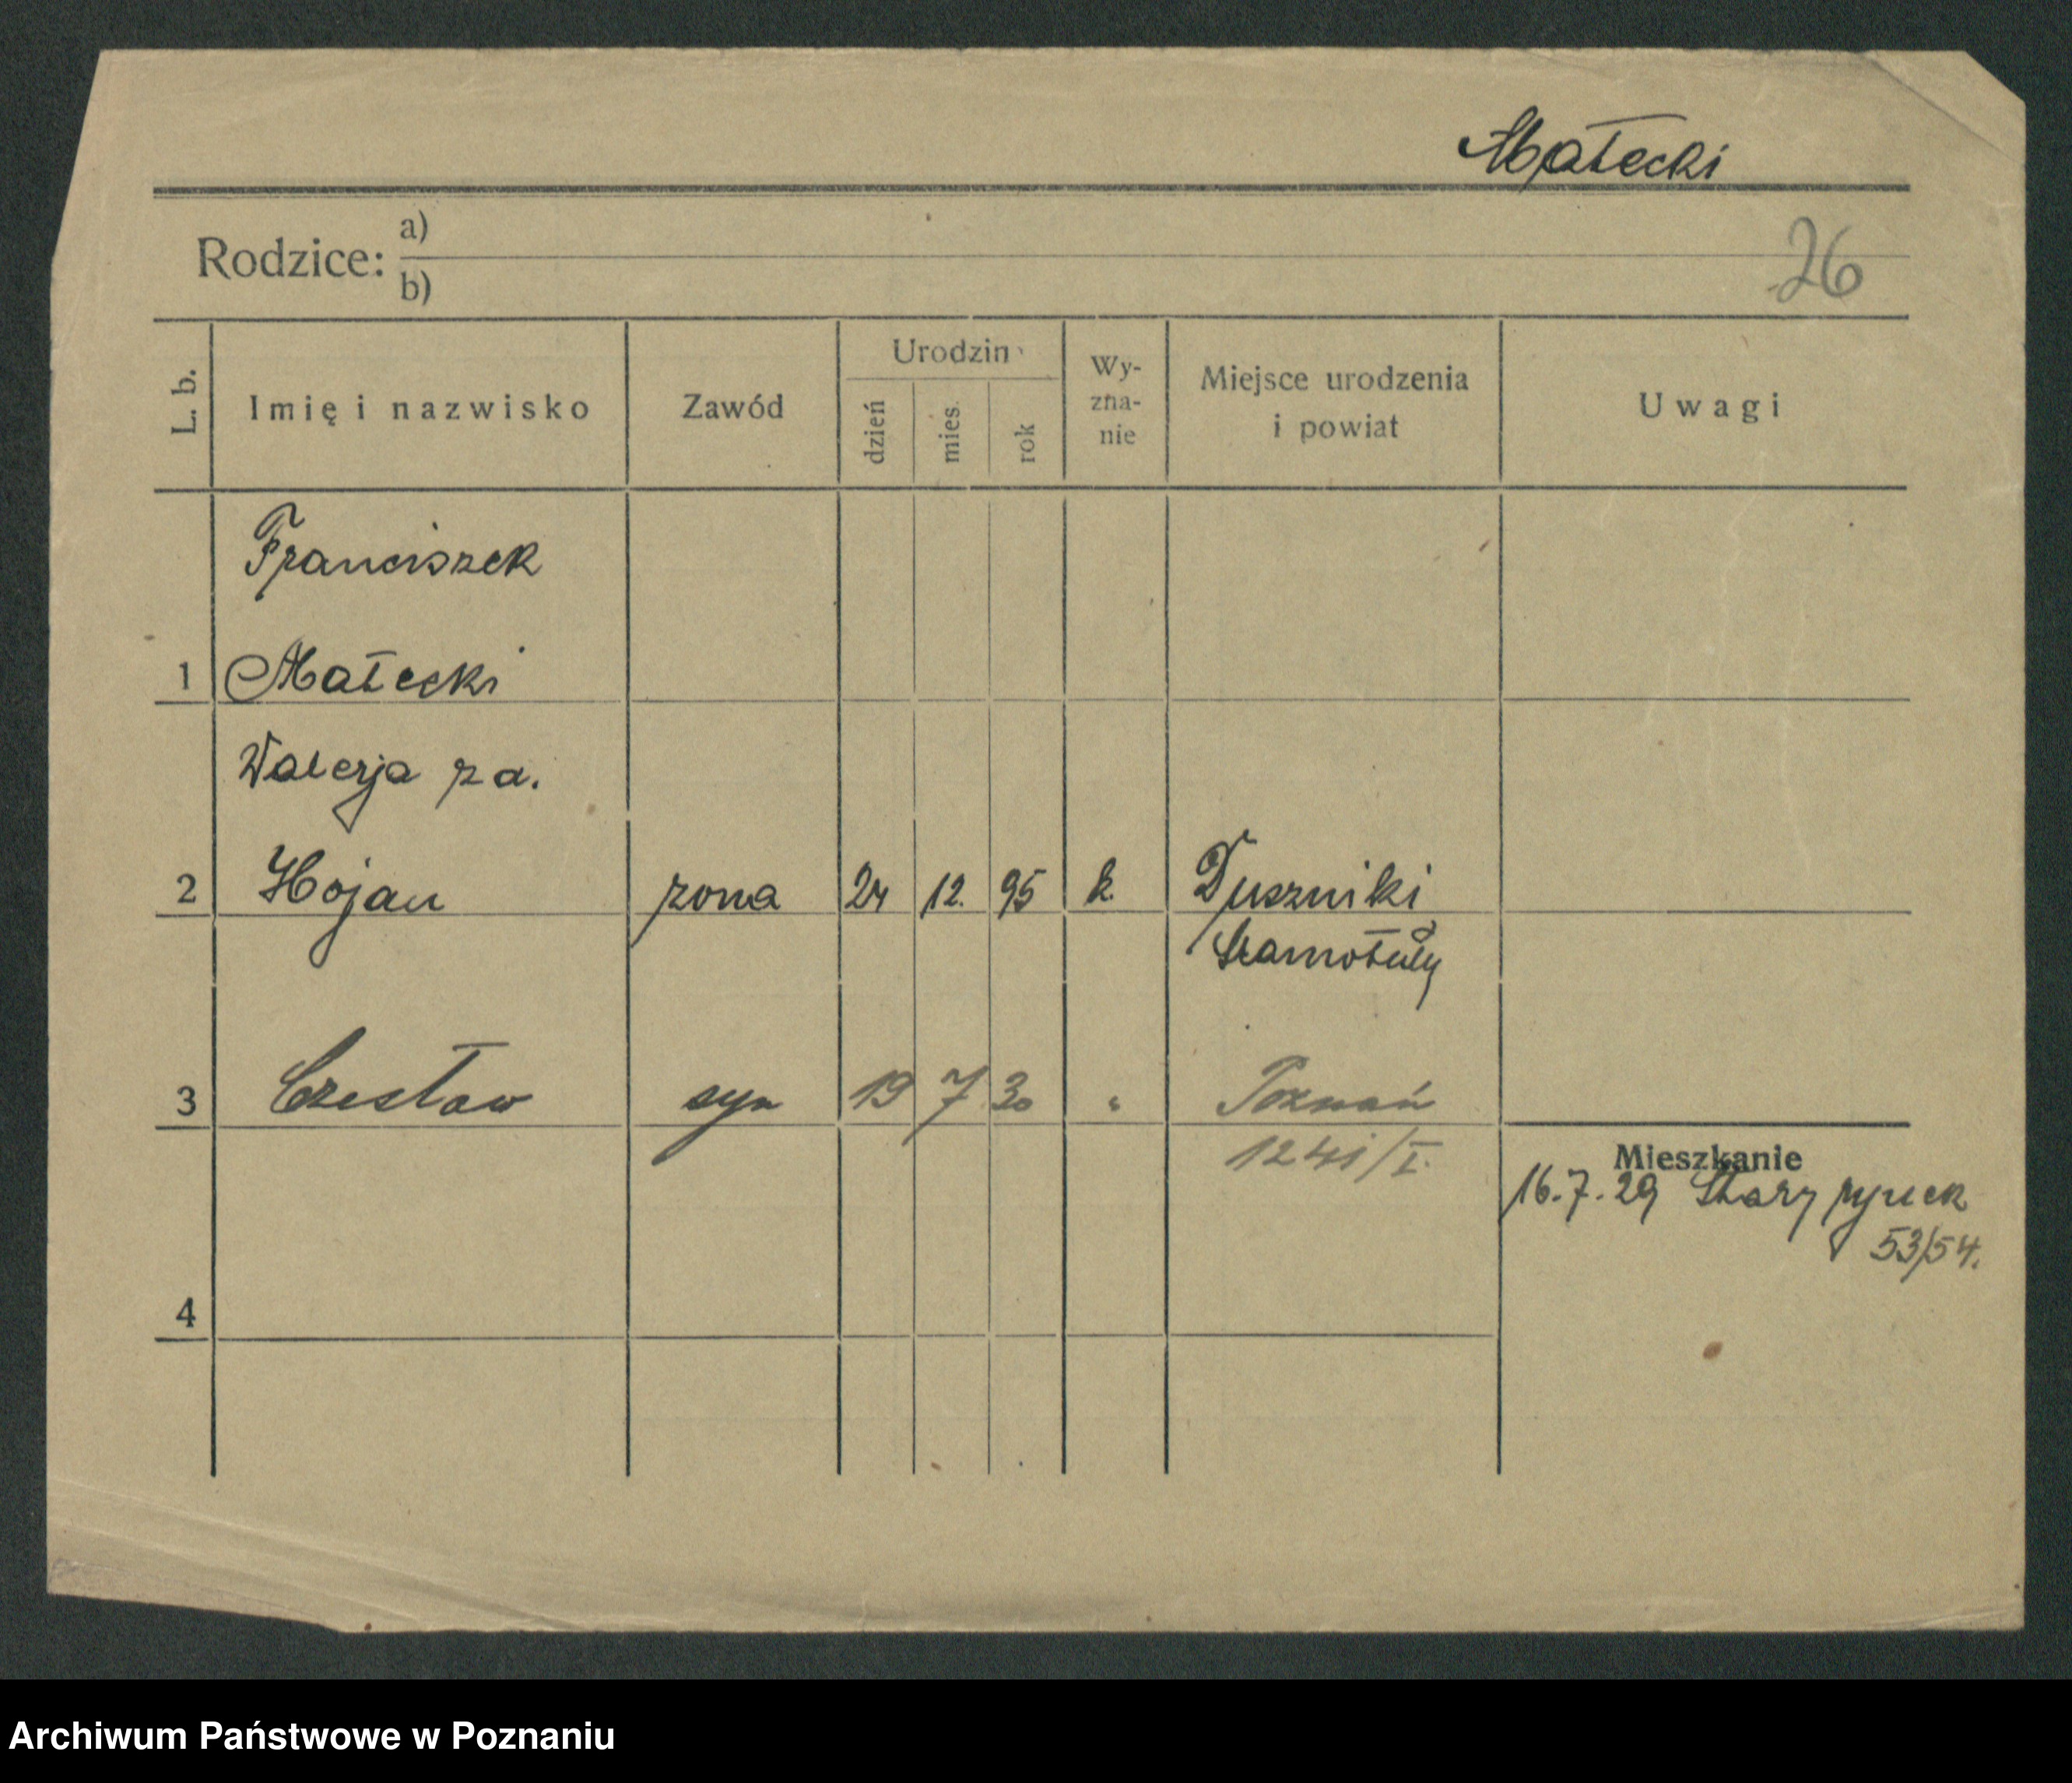 Małecki
Rodzice: a)
b)
26
L. b.
Imię i nazwisko
Zawód
Urodzin
dzień
mies.
rok
Wy-
zna-
nie
Miejsce urodzenia
i powiat
Uwagi
Franciszek
1 Małecki
Walerja za.
2 Hojan żona 24 12. 95 k. Duszniki
Szamotuły
3 Czesław syn 19 7 30 " Poznań
1241/I.
Mieszkanie
16.7.29 Stary rynek
53/54.
4
Archiwum Państwowe w Poznaniu